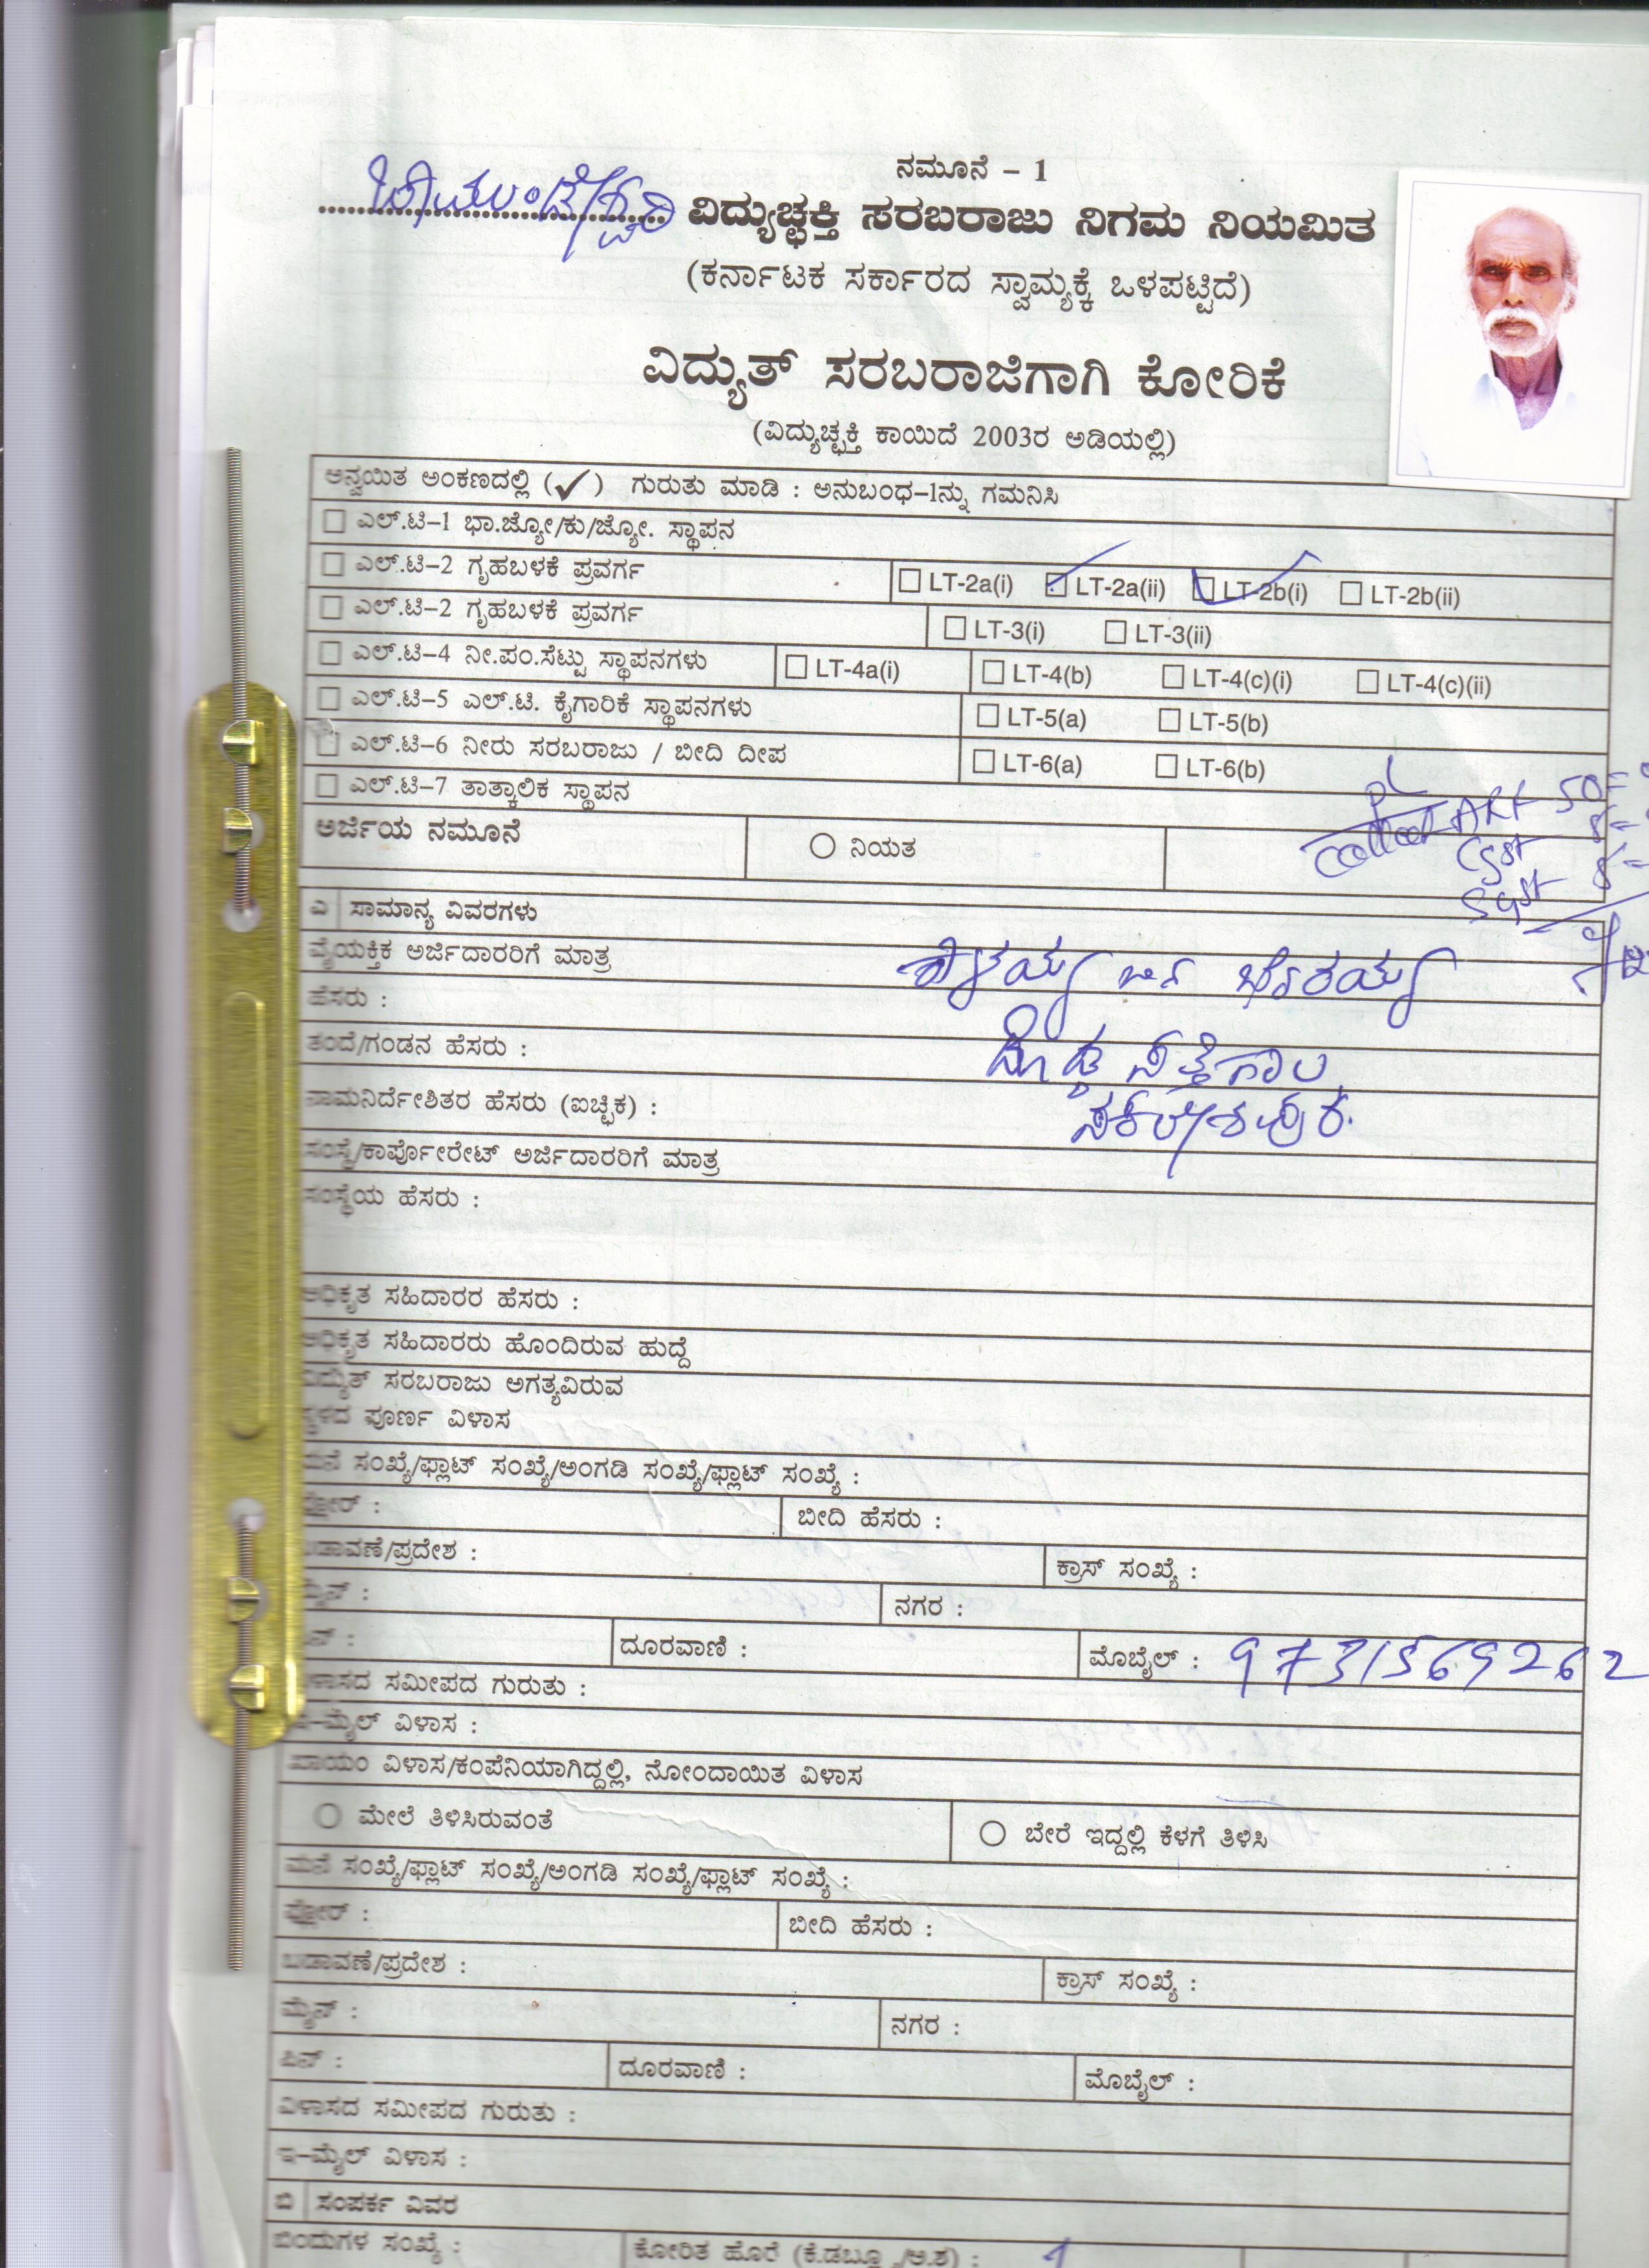 ನಮೂನೆ – 1
ಚಾಮುಂಡೇಶ್ವರಿ ವಿದ್ಯುಚ್ಛಕ್ತಿ ಸರಬರಾಜು ನಿಗಮ ನಿಯಮಿತ
(ಕರ್ನಾಟಕ ಸರ್ಕಾರದ ಸ್ವಾಮ್ಯಕ್ಕೆ ಒಳಪಟ್ಟಿದೆ)
ವಿದ್ಯುತ್ ಸರಬರಾಜಿಗಾಗಿ ಕೋರಿಕೆ
(ವಿದ್ಯುಚ್ಛಕ್ತಿ ಕಾಯಿದೆ 2003ರ ಅಡಿಯಲ್ಲಿ)
ಅನ್ವಯಿತ ಅಂಕಣದಲ್ಲಿ (✓) ಗುರುತು ಮಾಡಿ : ಅನುಬಂಧ–1ನ್ನು ಗಮನಿಸಿ
ಎಲ್.ಟಿ–1 ಭಾ.ಜ್ಯೋ/ಕು/ಜ್ಯೋ. ಸ್ಥಾಪನ
ಎಲ್.ಟಿ–2 ಗೃಹಬಳಕೆ ಪ್ರವರ್ಗ LT-2a(i) LT-2a(ii) LT-2b(i) LT-2b(ii)
ಎಲ್.ಟಿ–2 ಗೃಹಬಳಕೆ ಪ್ರವರ್ಗ LT-3(i) LT-3(ii)
ಎಲ್.ಟಿ–4 ನೀ.ಪಂ.ಸೆಟ್ಟು ಸ್ಥಾಪನಗಳು LT-4a(i) LT-4(b) LT-4(c)(i) LT-4(c)(ii)
ಎಲ್.ಟಿ–5 ಎಲ್.ಟಿ. ಕೈಗಾರಿಕೆ ಸ್ಥಾಪನಗಳು LT-5(a) LT-5(b)
ಎಲ್.ಟಿ–6 ನೀರು ಸರಬರಾಜು / ಬೀದಿ ದೀಪ LT-6(a) LT-6(b)
ಎಲ್.ಟಿ–7 ತಾತ್ಕಾಲಿಕ ಸ್ಥಾಪನ
pl
collect ARF 50=
Cgst
Sgst
ಅರ್ಜಿಯ ನಮೂನೆ ನಿಯತ
ಎ ಸಾಮಾನ್ಯ ವಿವರಗಳು
ವೈಯಕ್ತಿಕ ಅರ್ಜಿದಾರರಿಗೆ ಮಾತ್ರ
ಹೆಸರು : ಕಾಳಯ್ಯ ಬಿನ್ ಭೈರಯ್ಯ
ತಂದೆ/ಗಂಡನ ಹೆಸರು : ದೊಡ್ಡ ಸತ್ತಿಗಾಲ
ನಾಮನಿರ್ದೇಶಿತರ ಹೆಸರು (ಐಚ್ಛಿಕ) : ಸಕಲೇಶಪುರ.
ಸಂಸ್ಥೆ/ಕಾರ್ಪೋರೇಟ್ ಅರ್ಜಿದಾರರಿಗೆ ಮಾತ್ರ
ಸಂಸ್ಥೆಯ ಹೆಸರು :
ಅಧಿಕೃತ ಸಹಿದಾರರ ಹೆಸರು :
ಅಧಿಕೃತ ಸಹಿದಾರರು ಹೊಂದಿರುವ ಹುದ್ದೆ
ವಿದ್ಯುತ್ ಸರಬರಾಜು ಅಗತ್ಯವಿರುವ
ಸ್ಥಳದ ಪೂರ್ಣ ವಿಳಾಸ
ಮನೆ ಸಂಖ್ಯೆ/ಫ್ಲಾಟ್ ಸಂಖ್ಯೆ/ಅಂಗಡಿ ಸಂಖ್ಯೆ/ಫ್ಲಾಟ್ ಸಂಖ್ಯೆ :
ಫ್ಲೋರ್ : ಬೀದಿ ಹೆಸರು :
ಬಡಾವಣೆ/ಪ್ರದೇಶ : ಕ್ರಾಸ್ ಸಂಖ್ಯೆ :
ಮೈನ್ : ನಗರ :
ಪಿನ್ : ದೂರವಾಣಿ : ಮೊಬೈಲ್ : 9731569262
ವಿಳಾಸದ ಸಮೀಪದ ಗುರುತು :
ಇ–ಮೈಲ್ ವಿಳಾಸ :
ಖಾಯಂ ವಿಳಾಸ/ಕಂಪೆನಿಯಾಗಿದ್ದಲ್ಲಿ, ನೋಂದಾಯಿತ ವಿಳಾಸ
ಮೇಲೆ ತಿಳಿಸಿರುವಂತೆ ಬೇರೆ ಇದ್ದಲ್ಲಿ ಕೆಳಗೆ ತಿಳಿಸಿ
ಮನೆ ಸಂಖ್ಯೆ/ಫ್ಲಾಟ್ ಸಂಖ್ಯೆ/ಅಂಗಡಿ ಸಂಖ್ಯೆ/ಫ್ಲಾಟ್ ಸಂಖ್ಯೆ :
ಫ್ಲೋರ್ : ಬೀದಿ ಹೆಸರು :
ಬಡಾವಣೆ/ಪ್ರದೇಶ : ಕ್ರಾಸ್ ಸಂಖ್ಯೆ :
ಮೈನ್ : ನಗರ :
ಪಿನ್ : ದೂರವಾಣಿ : ಮೊಬೈಲ್ :
ವಿಳಾಸದ ಸಮೀಪದ ಗುರುತು :
ಇ–ಮೈಲ್ ವಿಳಾಸ :
ಬಿ ಸಂಪರ್ಕ ವಿವರ
ಬಿಂದುಗಳ ಸಂಖ್ಯೆ : ಕೋರಿತ ಹೊರೆ (ಕೆ.ಡಬ್ಲ್ಯೂ/ಅ.ಶ) : 1